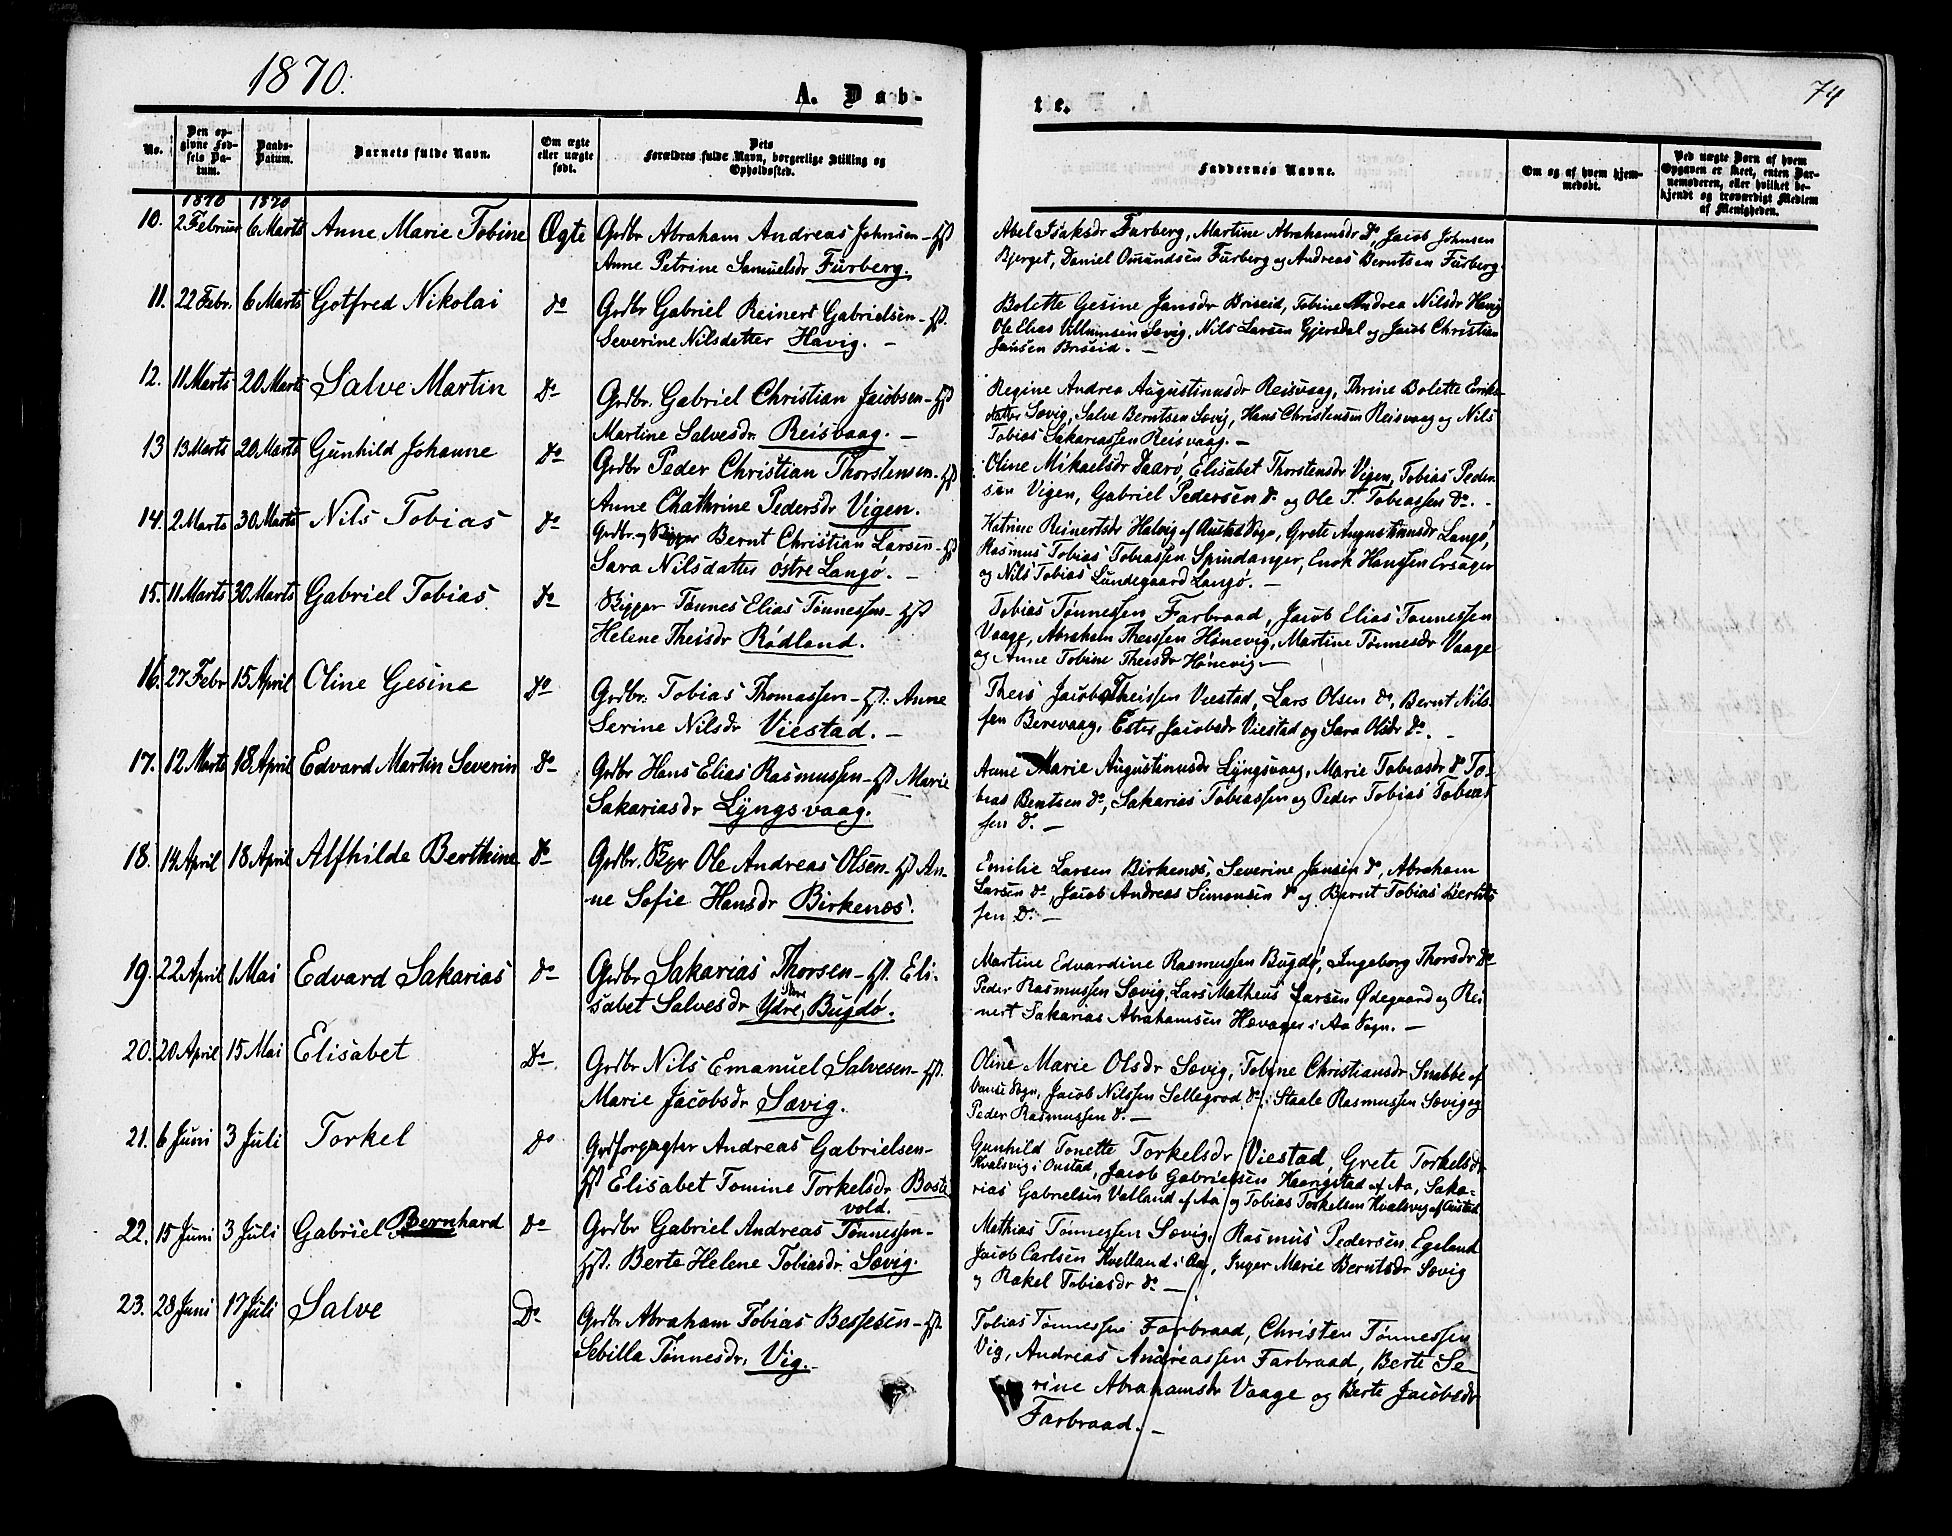 1870.
A. Dab-
te.
74
No.
Den op-
givne Fød-
sels Da-
tum.
Daabs-
Datum.
Barnets fulde Navn.
Om ægte
eller uægte
født.
Dets
Forældres fulde Navn, borgerlige Stilling og
Opholdssted.
Faddernes Navne.
Om og af hvem hjem-
medøbt.
Ved uægte Børn af hvem
Opgaven er skeet, enten Bar-
nemoderen, eller hvilket be-
kjendt og troværdigt Medlem
af Menigheden.
1870 1870
10. 2 Februar 6 Marts Anne Marie Tobine Ægte Grdbr Abraham Andreas Johnsen - Hst
Anne Petrine Samuelsdr Furberg.
Abel Isaksdr Furberg, Martine Abrahamsdr Do, Jacob Johnsen
Bjerget, Daniel Omundsen Furberg og Andreas Berntsen Furberg
11. 22 Febr. 6 Marts Gotfred Nikolai do Grdbr Gabriel Reinert Gabrielsen - Hst.
Severine Nilsdatter Høvig. -
Bolette Gesine Jansdr Briseid, Tobine Andrea Nilsdr Høvig
Ole Elias Villumsen Søvig, Nils Larsen Gjersdal og Jacob Christian
Jansen Briseid. -
12. 11 Marts 20 Marts Salve Martin Do Grdbr. Gabriel Christian Jacobsen - Hst
Martine Salvesdr. Reisvaag. -
Regine Andrea Augustinusdr Reisvaag, Thrine Bolette Eriks-
datter Søvig, Salve Berntsen Søvig, Hans Christensen Reisvaag og Nils
Tobias Sakariassen Reisvaag. -
13 13 Marts 20 Marts Gunhild Johanne Do Grdbr Peder Christian Thorstensen - Hst
Anne Chathrine Pedersdr Vigen.
Oline Mikaelsdr Daarø, Elisabet Thorstensdr Vigen, Tobias Peder-
sen Vigen, Gabriel Pedersen do og Ole T. Tobiassen Do. -
14. 2 Marts 30 Marts Nils Tobias Do Grdbr. og Skipper Bernt Christian Larsen - Hst
Sara Nilsdatter østre Langø. -
Katrine Reinertsdr Halvig af Oustad Sogn, Grete Augustinusdr Langø,
Rasmus Tobias Tobiassen Spindanger, Enok Hanssen Ersager
og Nils Tobias Lundegaard Langø. -
15. 11 Marts 30 Marts Gabriel Tobias. Do Skipper Tønnes Elias Tønnessen - Hst
Helene Theisdr Rødland.
Tobias Tønnessen Farbraad, Jacob Elias Tønnessen
Vaage, Abraham Theissen Hønevig, Martine Tønnesdr Vaage
og Anne Tobine Theisdr Hønevig -
16. 27 Febr 15 April Oline Gesine Do Grdbr. Tobias Thomassen - Hst: Anne
Serine Nilsdr Viestad. -
Theis Jacob Theissen Viestad, Lars Olsen do, Bernt Nils-
sen Berevaag, Ester Jacobsdr Viestad og Sara Olsdr Do. -
17. 12 Marts 18 April Edvard Martin Severin Do Grdbr Hans Elias Rasmussen - Hst Marie
Sakariasdr Lyngsvaag.
Anne Marie Augustinusdr Lyngsvaag, Marie Tobiasdr do To-
bias Bentsen do, Sakarias Tobiassen og Peder Tobias Tobias
sen Do. -
18. 14 April 18 April Alfhilde Berthine Do Grdbr. Ole Andreas Olsen - Hst An-
ne Sofie Hansdr Birkenes.
Emilie Larsen Birkenes, Severine Jansen do, Abraham
Larsen do, Jacob Andreas Simonsen do og Bernt Tobias Bernt-
sen Do. -
19. 22 April 1 Mai Edvard Sakarias do Grdbr Sakarias Thorsen - Hst. Eli-
sabet Salvesdr Ydre, Store Bugdø.
Martine Edvardine Rasmussen Bugdø, Ingeborg Thorsdr Do
Peder Rasmussen Søvig, Lars Matheus Larsen Ødegaard og Rei
nert Sakarias Abrahamsen Hævager i Aa Sogn. -
20. 20 April 15 Mai Elisabet Do Grdbr Nils Emanuel Salvesen - Hst.
Marie Jacobsdr Søvig.
Oline Marie Olsdr Søvig, Tobine Christiansdr Snabbe af
Vanse Sogn, Jacob Nilssen Sellegrod do, Staale Rasmussen Søvig og
Peder Rasmussen do. -
21. 6 Juni 3 Juli Torkel Do Grdforpagter Andreas Gabrielsen -
Hst Elisabet Tomine Torkelsdr. Boste
vold.
Gunhild Tonette Torkelsdr Viestad, Grete Torkelsdr
Kvalsvig i Oustad, Jacob Gabrielsen Haarigstad af Aa, Saka-
rias Gabrielsen Vatland af Aa og Tobias Torkelsen Kvalsvig af Oustad
22. 15 Juni 3 Juli Gabriel Bernhard Do Grdbr Gabriel Andreas Tønnessen -
Hst. Berte Helene Tobiasdr. Søvig.
Mathias Tønnessen Søvig, Rasmus Pedersen Egeland
Jacob Carlsen Kvelland i Aa, Inger Marie Berntsdr Søvig
og Rakel Tobiasdr Do -
23. 28 Juni 17 Juli Salve Do Grdbr Abraham Tobias Bessesen - Hst.
Sebilla Tønnesdr. Vig. -
Tobias Tønnessen Farbraad, Christen Tønnessen
Vig, Andreas Andreassen Farbraad, Berte Se-
rine Abrahamsdr Vaage og Berte Jacobsdr
Farbraad. -